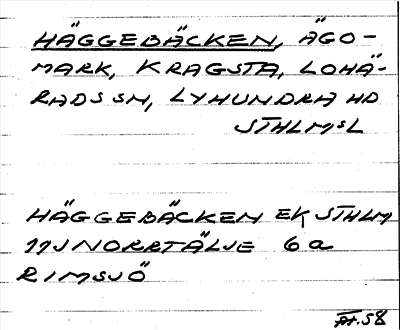 HÄGGEBÄCKEN, ÄGO-
MARK, KRAGSTA, LOHÄ-
RADS SN, LYHUNDRA HD
STHLMSL
HÄGGEBÄCKEN EK STHLM
11J NORRTÄLJE 6a
RIMSJÖ